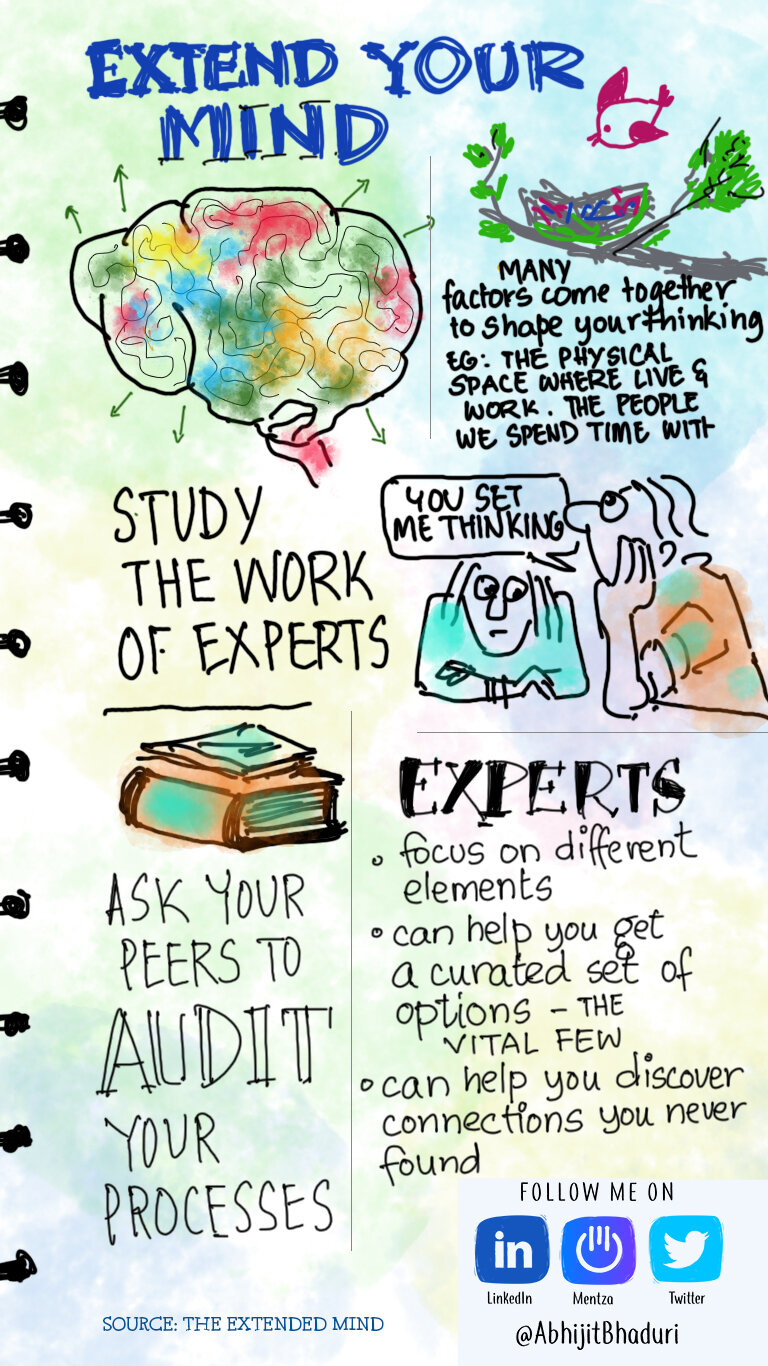 EXTEND YOUR
MIND
MANY
factors come together
to shape your thinking
EG: THE PHYSICAL
SPACE WHERE LIVE &
WORK. THE PEOPLE
WE SPEND TIME WITH
STUDY
THE WORK
OF EXPERTS
YOU SET
ME THINKING
ASK YOUR
PEERS TO
AUDIT
YOUR
PROCESSES
EXPERTS
focus on different
elements
can help you get
a curated set of
options – THE
VITAL FEW
can help you discover
connections you never
found
FOLLOW ME ON
in
LinkedIn Mentza Twitter
@AbhijitBhaduri
SOURCE: THE EXTENDED MIND